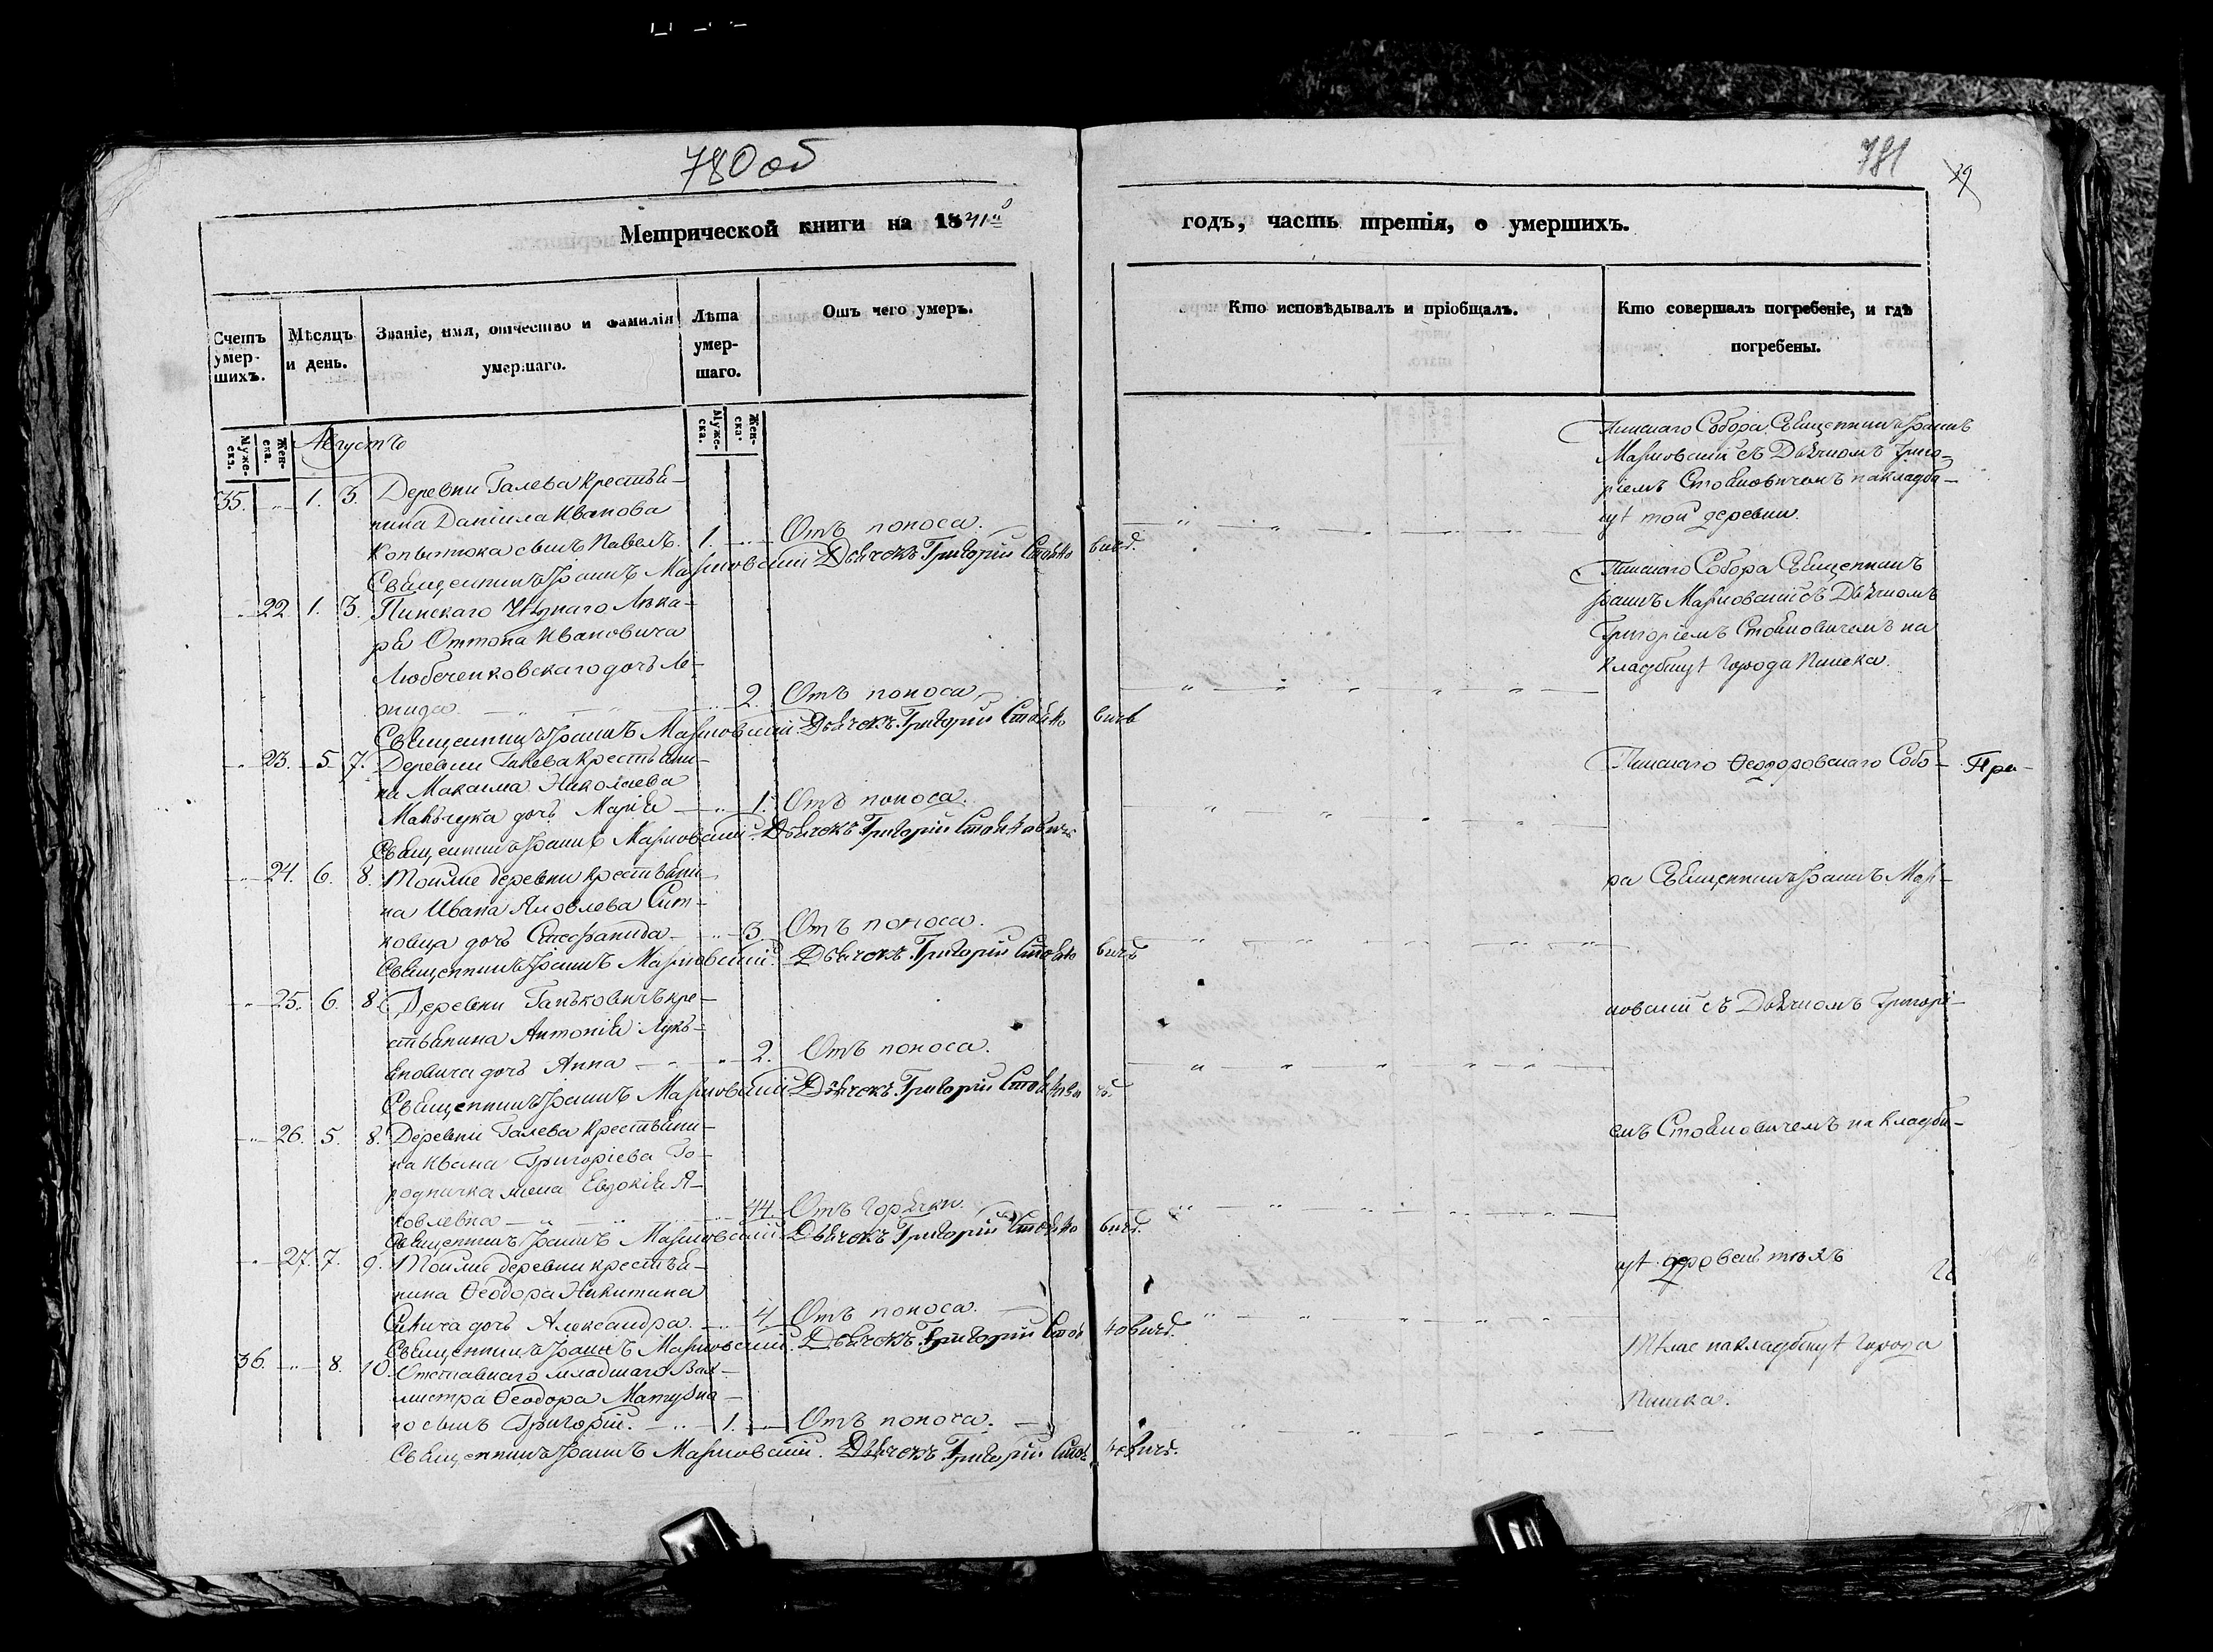 780 об
781
29
Метрической книги на 1841й
годъ, часть третія, о умершихъ.
Счетъ умер-шихъ.
Мѣсяцъ и день.
Званіе, имя, отчество и фамилія умершаго.
Лѣта умер-шаго.
Отъ чего умеръ.
Кто исповѣдывалъ и пріобщалъ.
Кто совершалъ погребеніе, и гдѣ погребены.
Муже-ска.
Жен-ска.
Августъ
Муже-ска.
Жен-ска.
35. 1. 3. Деревни Галева крестья-
нина Даніила Иванова
Копытюка сынъ Павелъ. 1. Отъ поноса.
Священникъ Іоаннъ Марковскій Дьячекъ Григорій Стояновичъ.
Пинскаго Собора Священникъ Іоаннъ
Марковскій съ Дьячкомъ Григо-
ріемъ Стояновичемъ на кладби-
щѣ той деревни.
22. 1. 3. Пинскаго Уѣзднаго Лѣка-
ря Оттона Ивановича
Любеченковскаго дочь Ле-
онида 2. Отъ поноса
Священникъ Іоаннъ Марковскій Дьячекъ Григорій Стояновичъ
Пинскаго Собора Священникъ
Іоаннъ Марковскій съ Дьячкомъ
Григоріемъ Стояновичемъ на
кладбищѣ города Пинска.
23. 5. 7. Деревни Галева крестьяни-
на Максима Николаева
дочь Марія 1. Отъ поноса.
Священникъ Іоаннъ Марковскій Дьячекъ Григорій Стояновичъ
Пинскаго Ѳеодоровскаго Собо-
24. 6. 8. Тойже деревни крестьяни-
на Ивана Яковлева Сит-
ковца дочь Стефанида 3. Отъ поноса.
Священникъ Іоаннъ Марковскій. Дьячекъ Григорій Стояновичъ
ра Священникъ Іоаннъ Мар-
25. 6. 8. Деревни Ганьковичъ кре-
стьянина Антонія Лукь-
яновича дочь Анна 2. Отъ поноса.
Священникъ Іоаннъ Марковскій Дьячекъ Григорій Стояновичъ.
ковскій съ Дьячкомъ Григорі-
26. 5. 8. Деревни Галева крестьяни-
на Ивана Григоріева Го-
родничка жена Евдокія Я-
ковлевна 44. Отъ горячки.
Священникъ Іоаннъ Марковскій Дьячекъ Григорій Стояновичъ.
емъ Стояновичемъ на кладби-
27. 7. 9. Тойже деревни крестья-
нина Ѳеодора Никитина
дочь Александра 4. Отъ поноса.
Священникъ Іоаннъ Марковскій. Дьячекъ Григорій Стояновичъ.
щѣ деревень тѣхъ
36. 8. 10. Отставнаго младшаго Вах-
мистра Ѳеодора
сынъ Григорій. 1. Отъ поноса.
Священникъ Іоаннъ Марковскій. Дьячекъ Григорій Стояновичъ.
на кладбищѣ города
Пинска.